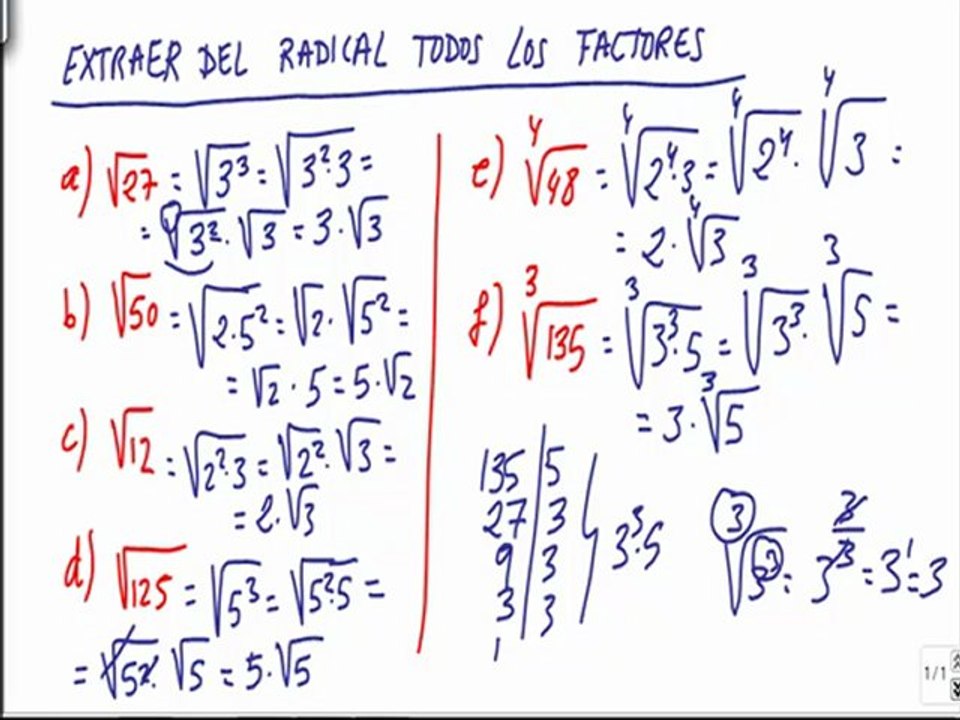 EXTRAER DEL RADICAL TODOS LOS FACTORES
a) √27 = √3³ = √3²·3 =
= √3²·√3 = 3·√3
b) √50 = √2·5² = √2·√5² =
= √2·5 = 5·√2
c) √12 = √2²·3 = √2²·√3 =
= 2·√3
d) √125 = √5³ = √5²·5 =
= √5²·√5 = 5·√5
e) ⁴√48 = ⁴√2⁴·3 = ⁴√2⁴·⁴√3 =
= 2·⁴√3
f) ³√135 = ³√3³·5 = ³√3³·³√5 =
= 3·³√5
135 | 5
27 | 3
9 | 3
3 | 3
1
3³·5
³√3³ = 3^(3/3) = 3¹ = 3
1/1